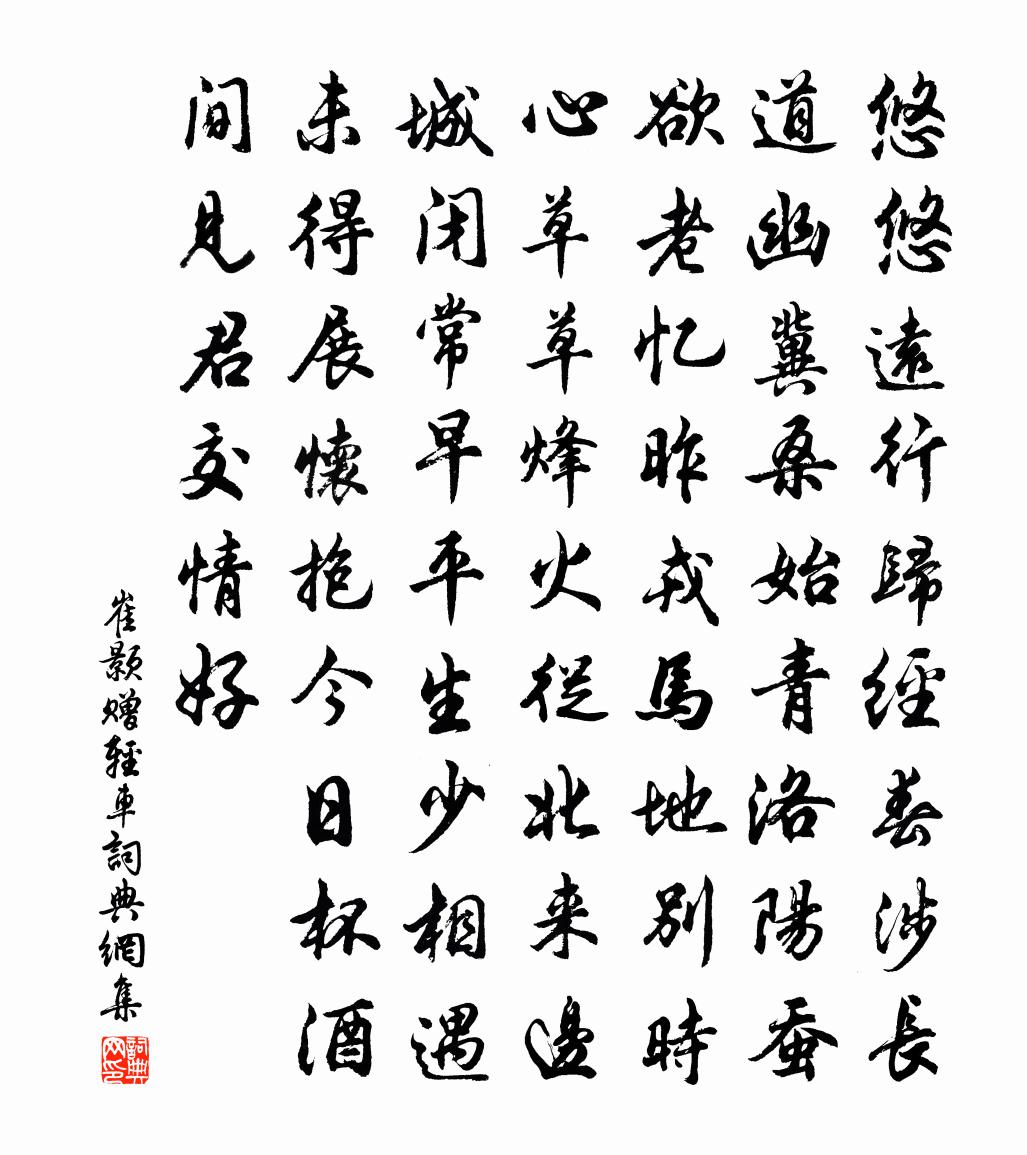 悠悠遠行歸經春涉長
道幽冀桑始青洛陽蚕
欲老忆昨戎馬地別時
心草草烽火從北来邊
城闭常早平生少相遇
未得展懷抱今日杯酒
间見君交情好
崔颢赠輕車詞典網集
詞典网印